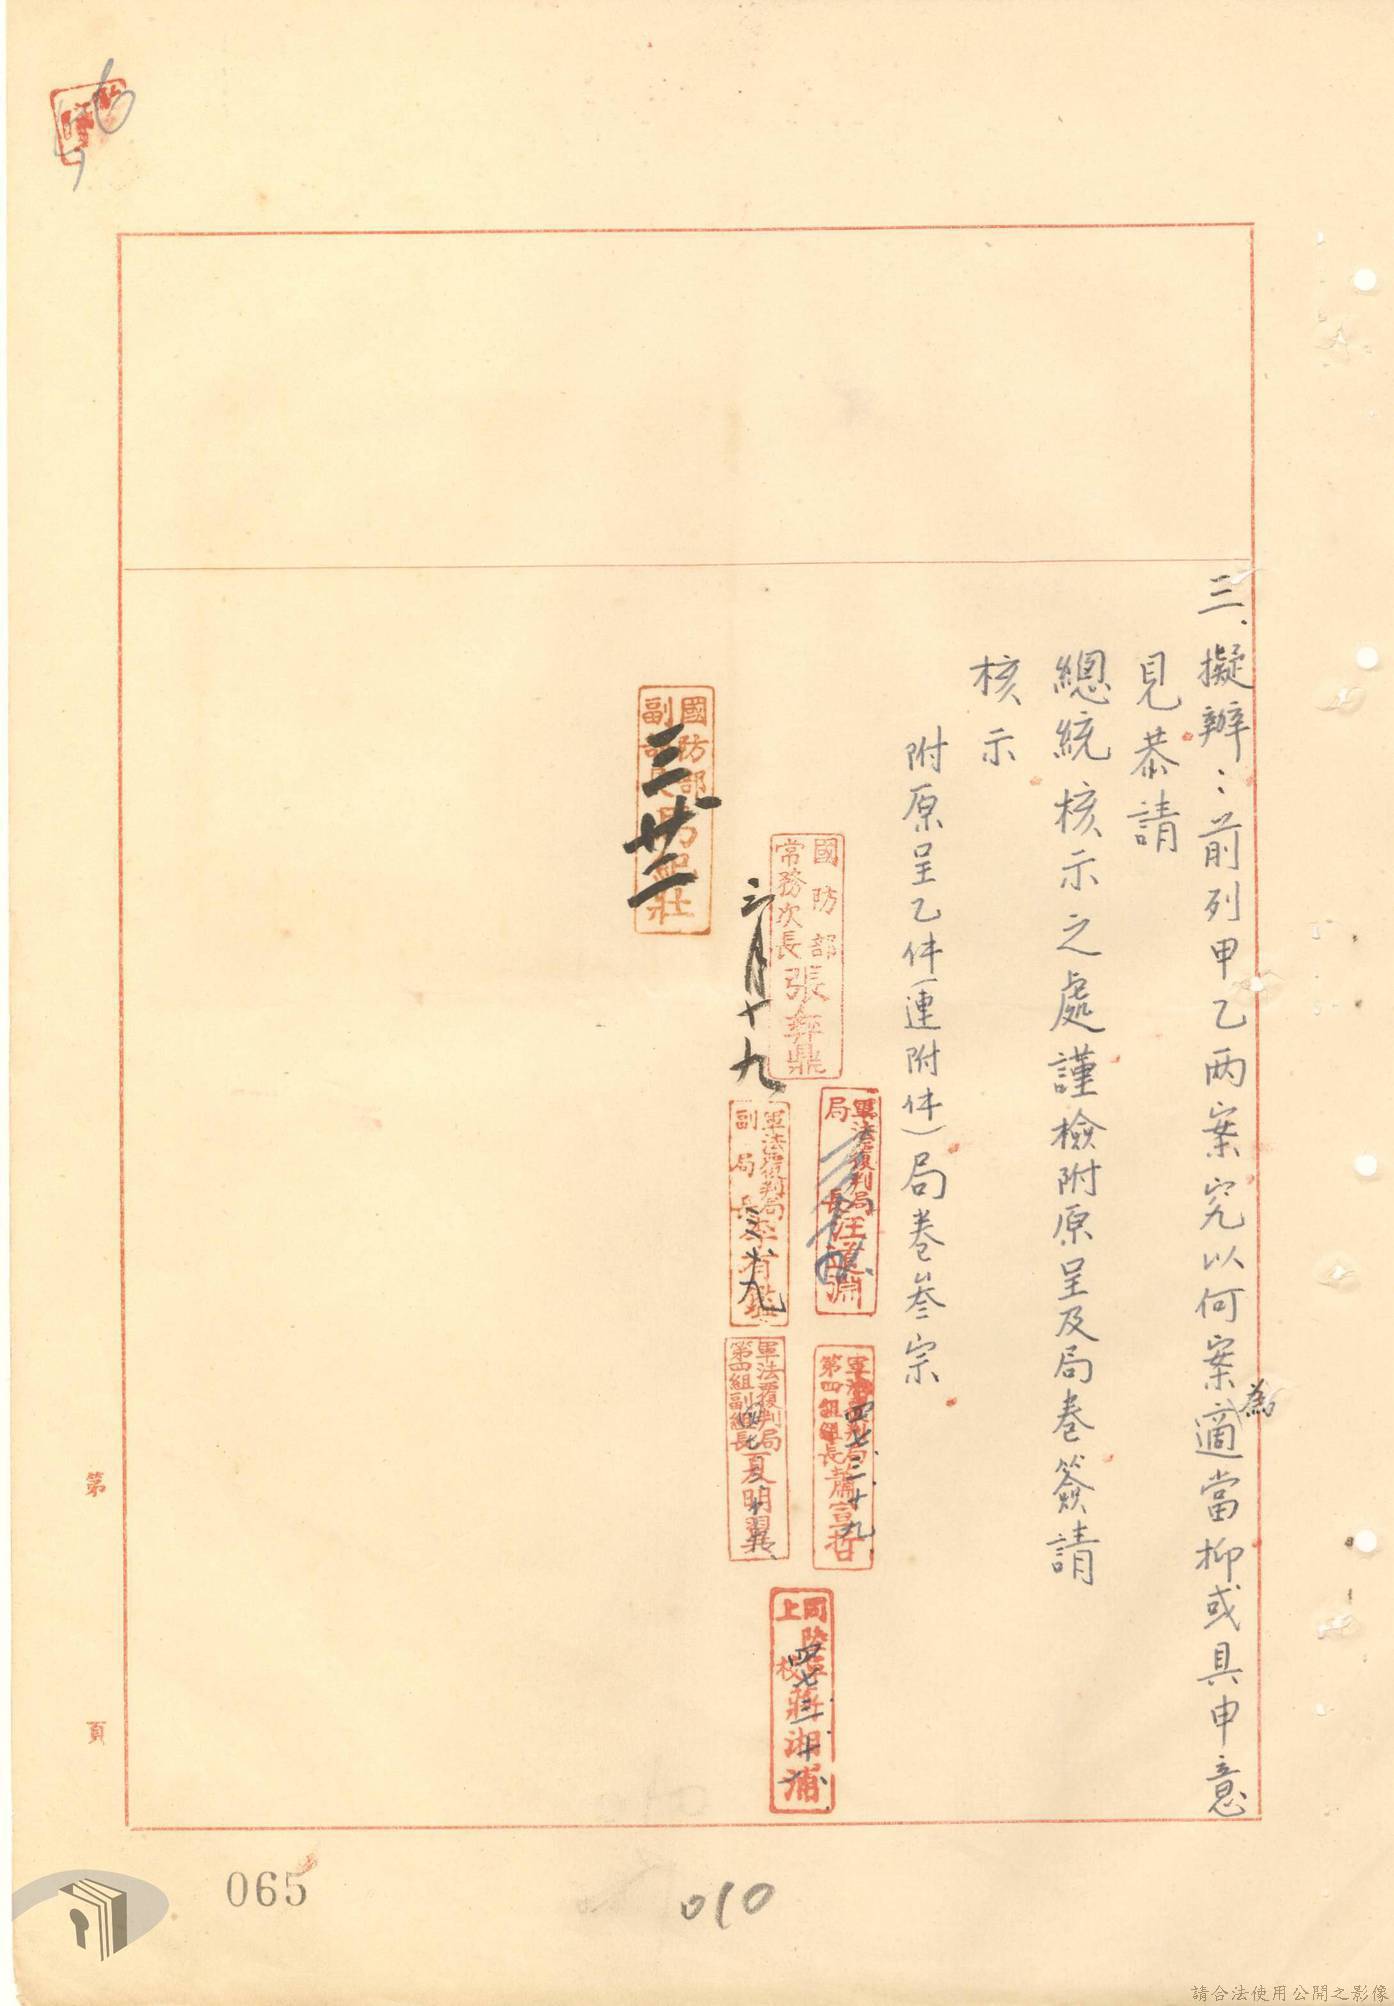 三、擬辦：前列甲乙兩案究以何案為適當抑或具申意
見恭請
總統核示之處謹檢附原呈及局卷簽請
核示
附原呈乙件（連附件）局卷叁宗
軍法覆判局
局長汪道淵
軍法覆判局
第四組組長蕭宣哲
四七、三、十九
國防部
常務次長張彝鼎
三月十九
同陸軍
上校蔣湘浦
四七、三、十八
軍法覆判局
副局長
軍法覆判局
第四組副組長夏明翼
國防部
副部長馬紀壯
三廿二
第 頁
065
010
請合法使用公開之影像